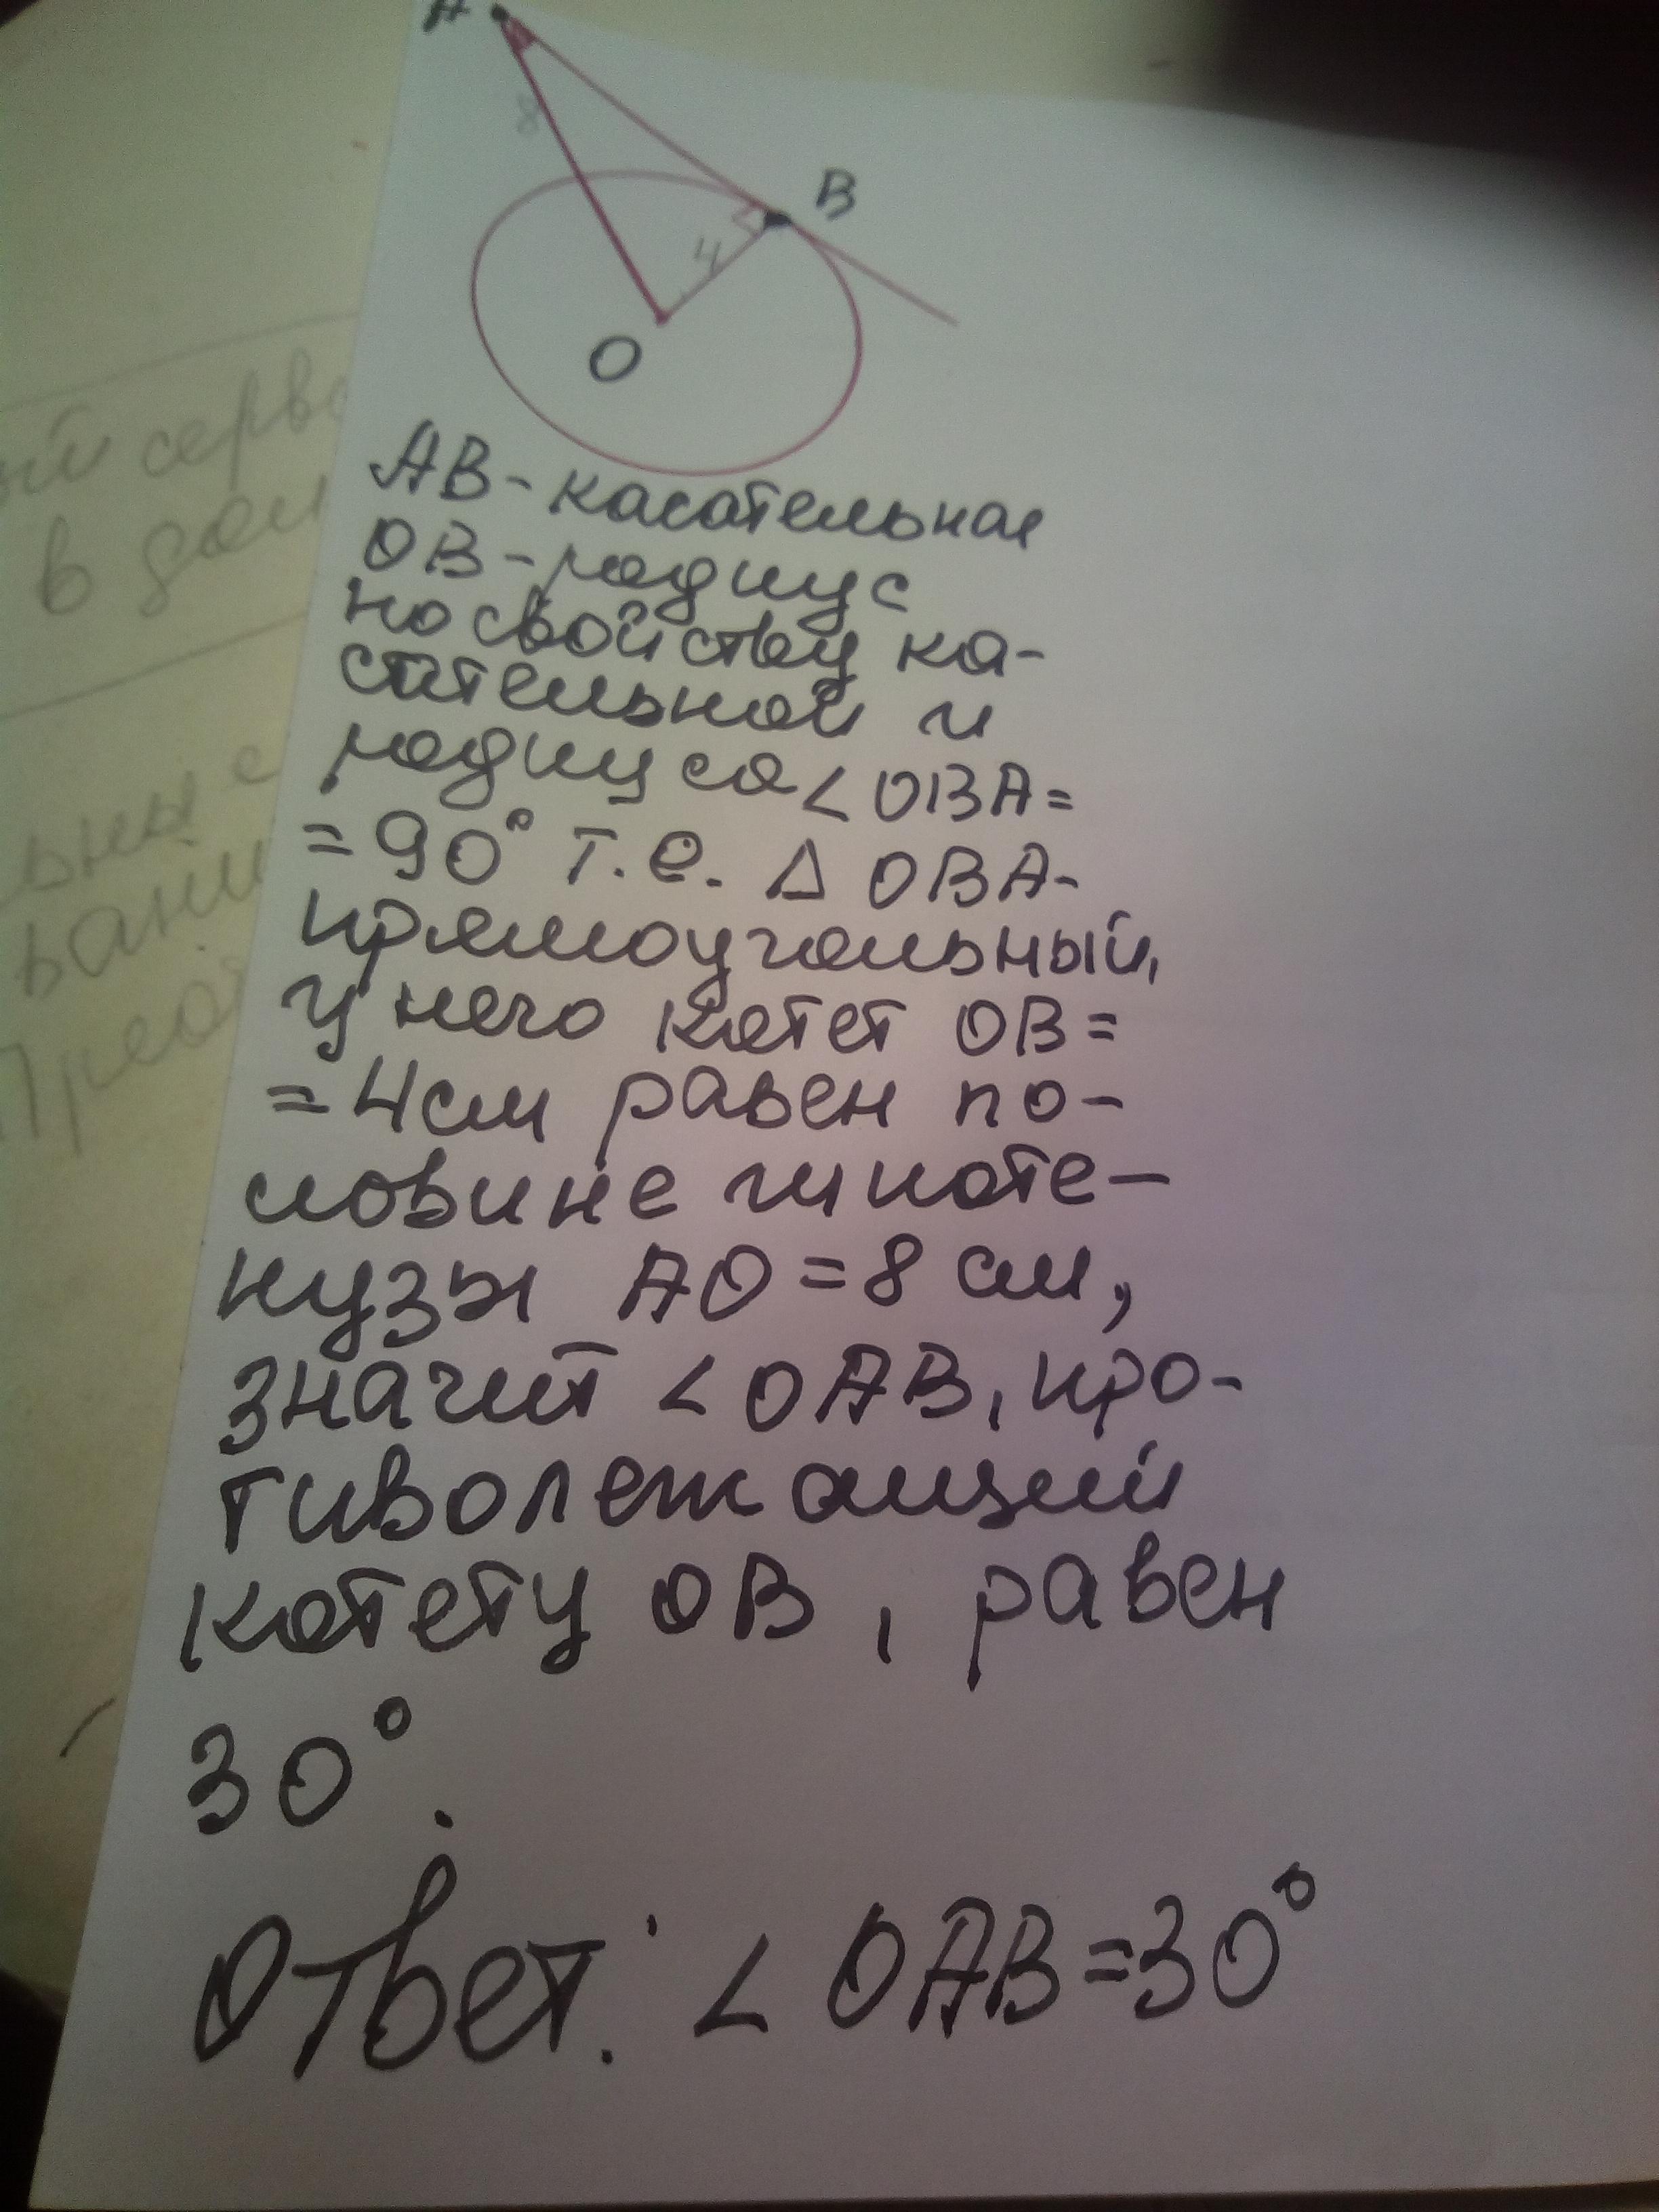 A
8
B
4
O
AB - касательная
OB - радиус
по свойству ка-
сательной и
радиуса < OBA =
= 90° т.е. Δ OBA -
прямоугольный,
у него катет OB =
= 4 см равен по-
ловине гипоте-
нузы AO = 8 см,
значит < OAB, про-
тиволежащий
катету OB, равен
30°.
Ответ: < OAB = 30°
ый серв
в дом
ьны е
вани